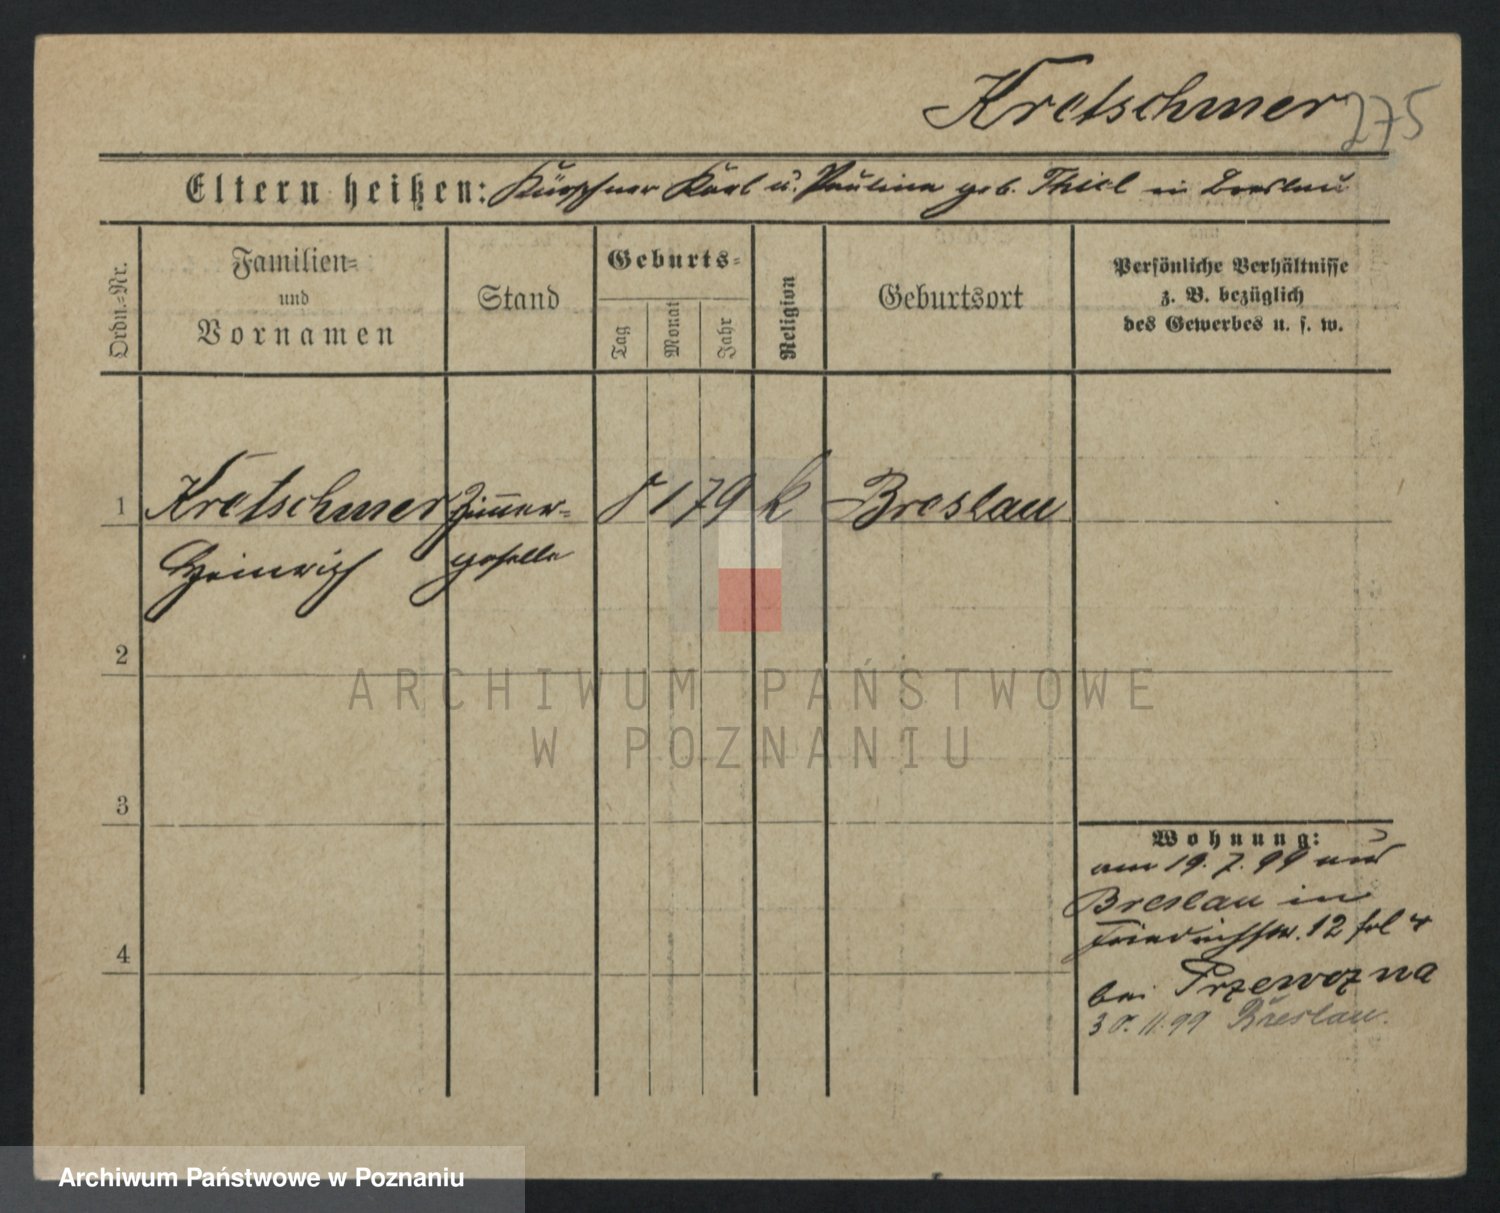 Kretschmer 275
Eltern heißen: Kürschner Karl u. Paulina geb. Thiel in Breslau
Ordn.-Nr.
Familien-
und
Vornamen
Stand
Geburts-
Tag
Monat
Jahr
Religion
Geburtsort
Persönliche Verhältnisse
z. B. bezüglich
des Gewerbes u. s. w.
1 Kretschmer Zimmer- 8 1 79 k Breslau
Heinrich geselle
2
ARCHIWUM PAŃSTWOWE
W POZNANIU
3
Wohnung:
am 19. 7. 99 aus
Breslau in
Friedrichstr. 12
4
bei Przewozna
30. 11. 99 Breslau.
Archiwum Państwowe w Poznaniu